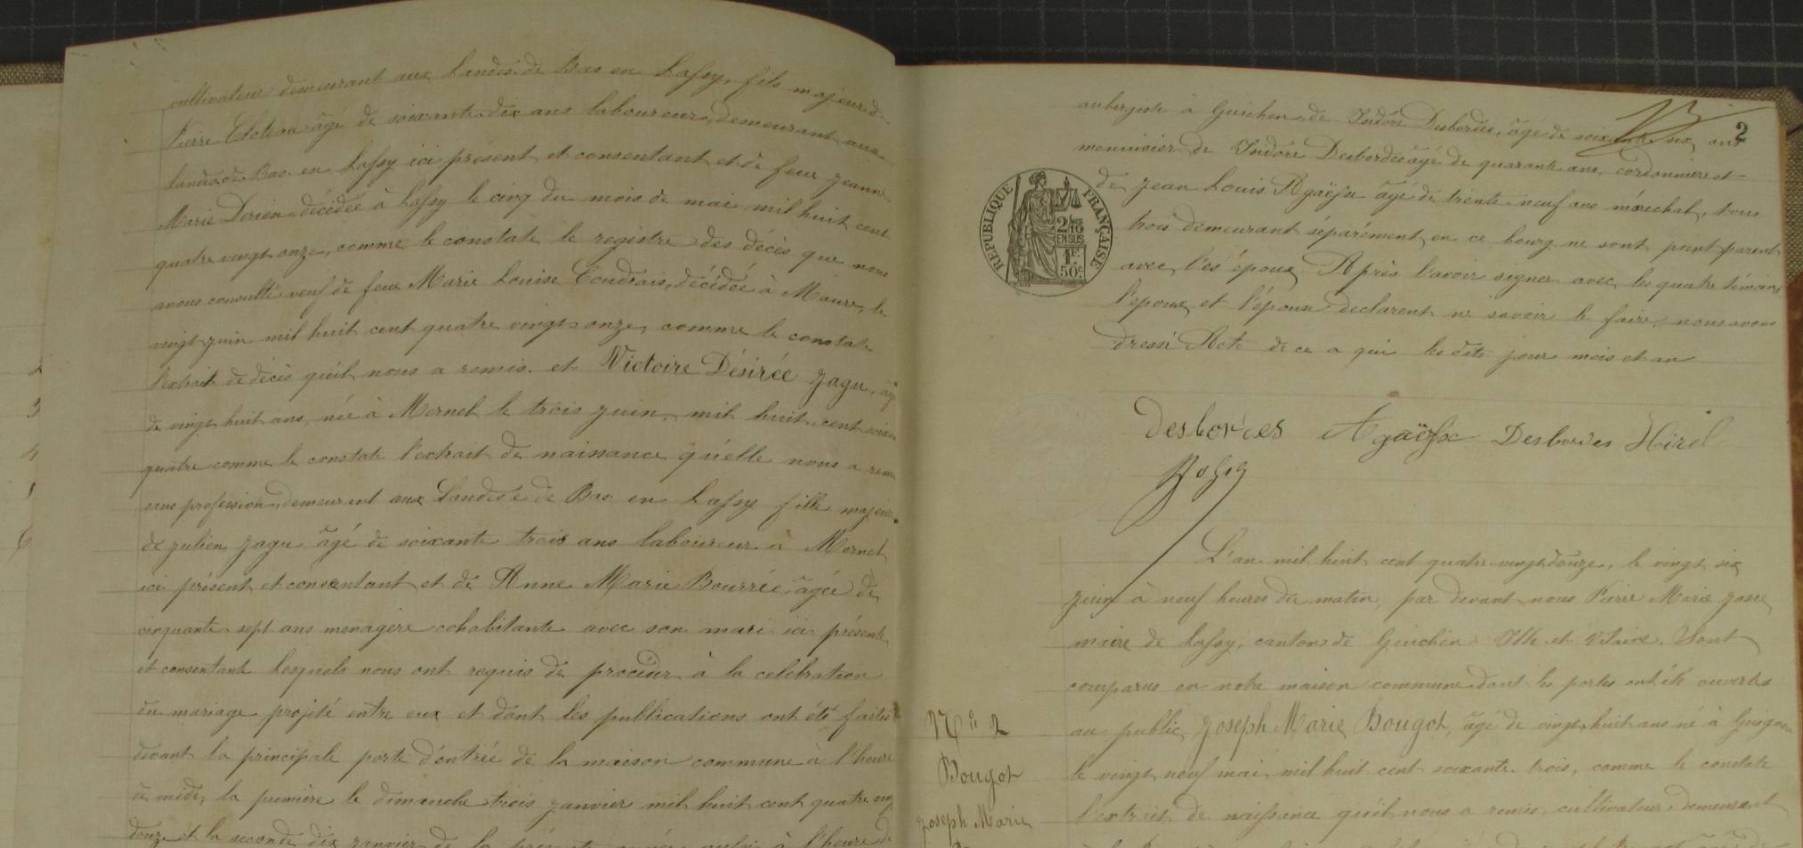 cultivateur demeurant aux Landes de Bas en Lassy, fils majeur de
Pierre âgé de soixante dix ans laboureur, demeurant aux
Landes de Bas en Lassy ici présent et consentant et de feue Jeanne
Marie Dorion décédée à Lassy le cinq du mois de mai mil huit cent
quatre vingt onze, comme le constate le registre des décès que nous
avons consulté veuf de feue Marie Louise Coudrais, décédée à Maure, le
vingt juin mil huit cent quatre vingt onze, comme le constate
l'extrait de décès qu'il nous a remis. et Victoire Désirée Jagu, âgée
de vingt huit ans, née à Mernel le trois juin, mil huit cent soixante
quatre comme le constate l'extrait de naissance qu'elle nous a remis
sans profession, demeurant aux Landes de Bas en Lassy fille majeure
de Julien Jagu âgé de soixante trois ans laboureur à Mernel
ici présent et consentant et de Anne Marie Bourrée âgée de
cinquante sept ans ménagère cohabitante avec son mari ici présente
et consentant lesquels nous ont requis de procéder à la célébration
du mariage projeté entre eux et dont les publications ont été faites
devant la principale porte d'entrée de la maison commune à l'heure
de midi, la première le dimanche trois janvier mil huit cent quatre vingt
douze et la seconde dix janvier de la à l'heure de
2
aubergiste à Guichen, de Isidore Desbordes, âgé de soixante six ans
menuisier de Isidore Desbordes âgé de quarante ans, cordonnier et
de Jean Louis Agaësse âgé de trente neuf ans maréchal, tous
trois demeurant séparément en ce bourg ne sont point parent
avec les époux. Après l'avoir signer avec les quatre témoins
l'époux et l'épouse déclarent ne savoir le faire, nous avons
dressé Acte de ce a qui les dits jour mois et an
RÉPUBLIQUE FRANÇAISE
2/10
EN SUS
1F
50c
Desbordes Agaësse Desbordes Hirel
L'an mil huit cent quatre-vingt douze, le vingt six
juin à neuf heures du matin, par devant nous Pierre Marie
maire de Lassy, canton de Guichen Ille et Vilaine. Sont
comparus en notre maison commune dont les portes ont été ouvertes
au public, Joseph Marie Bougot, âgé de vingt huit ans né à Guignen
le vingt neuf mai mil huit cent soixante trois, comme le constate
l'extrait de naissance qu'il nous a remis, cultivateur demeurant
N° 2
Bougot
Joseph Marie